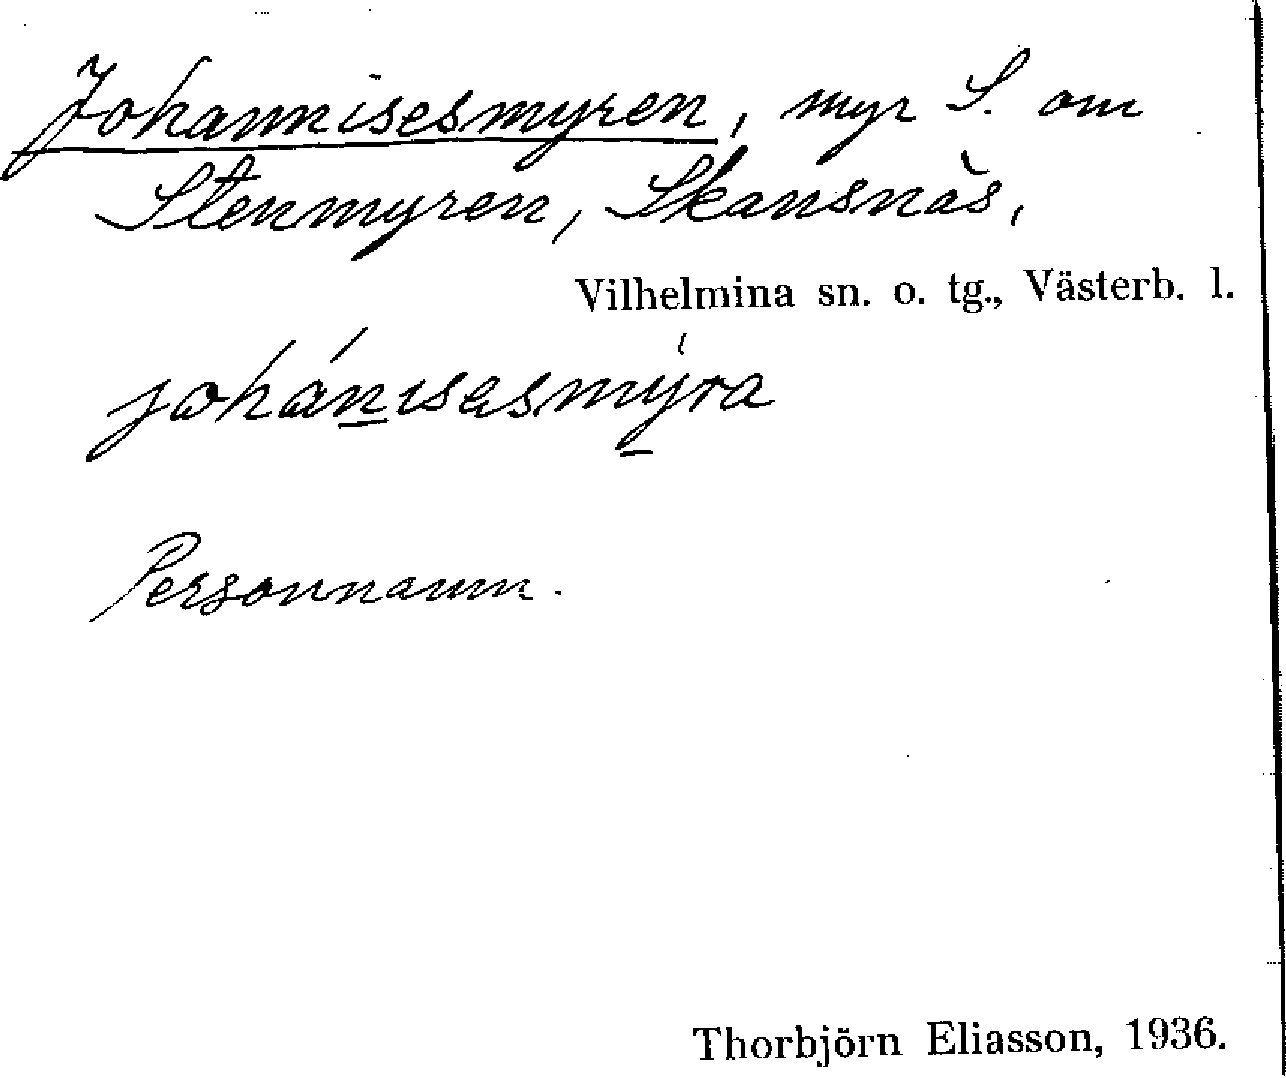 Johannisesmyren, myr S. om
Stenmyren, Skansnäs,
Vilhelmina sn. o. tg., Västerb. l.
johánısəsmýra
Personnamn.
Thorbjörn Eliasson, 1936.